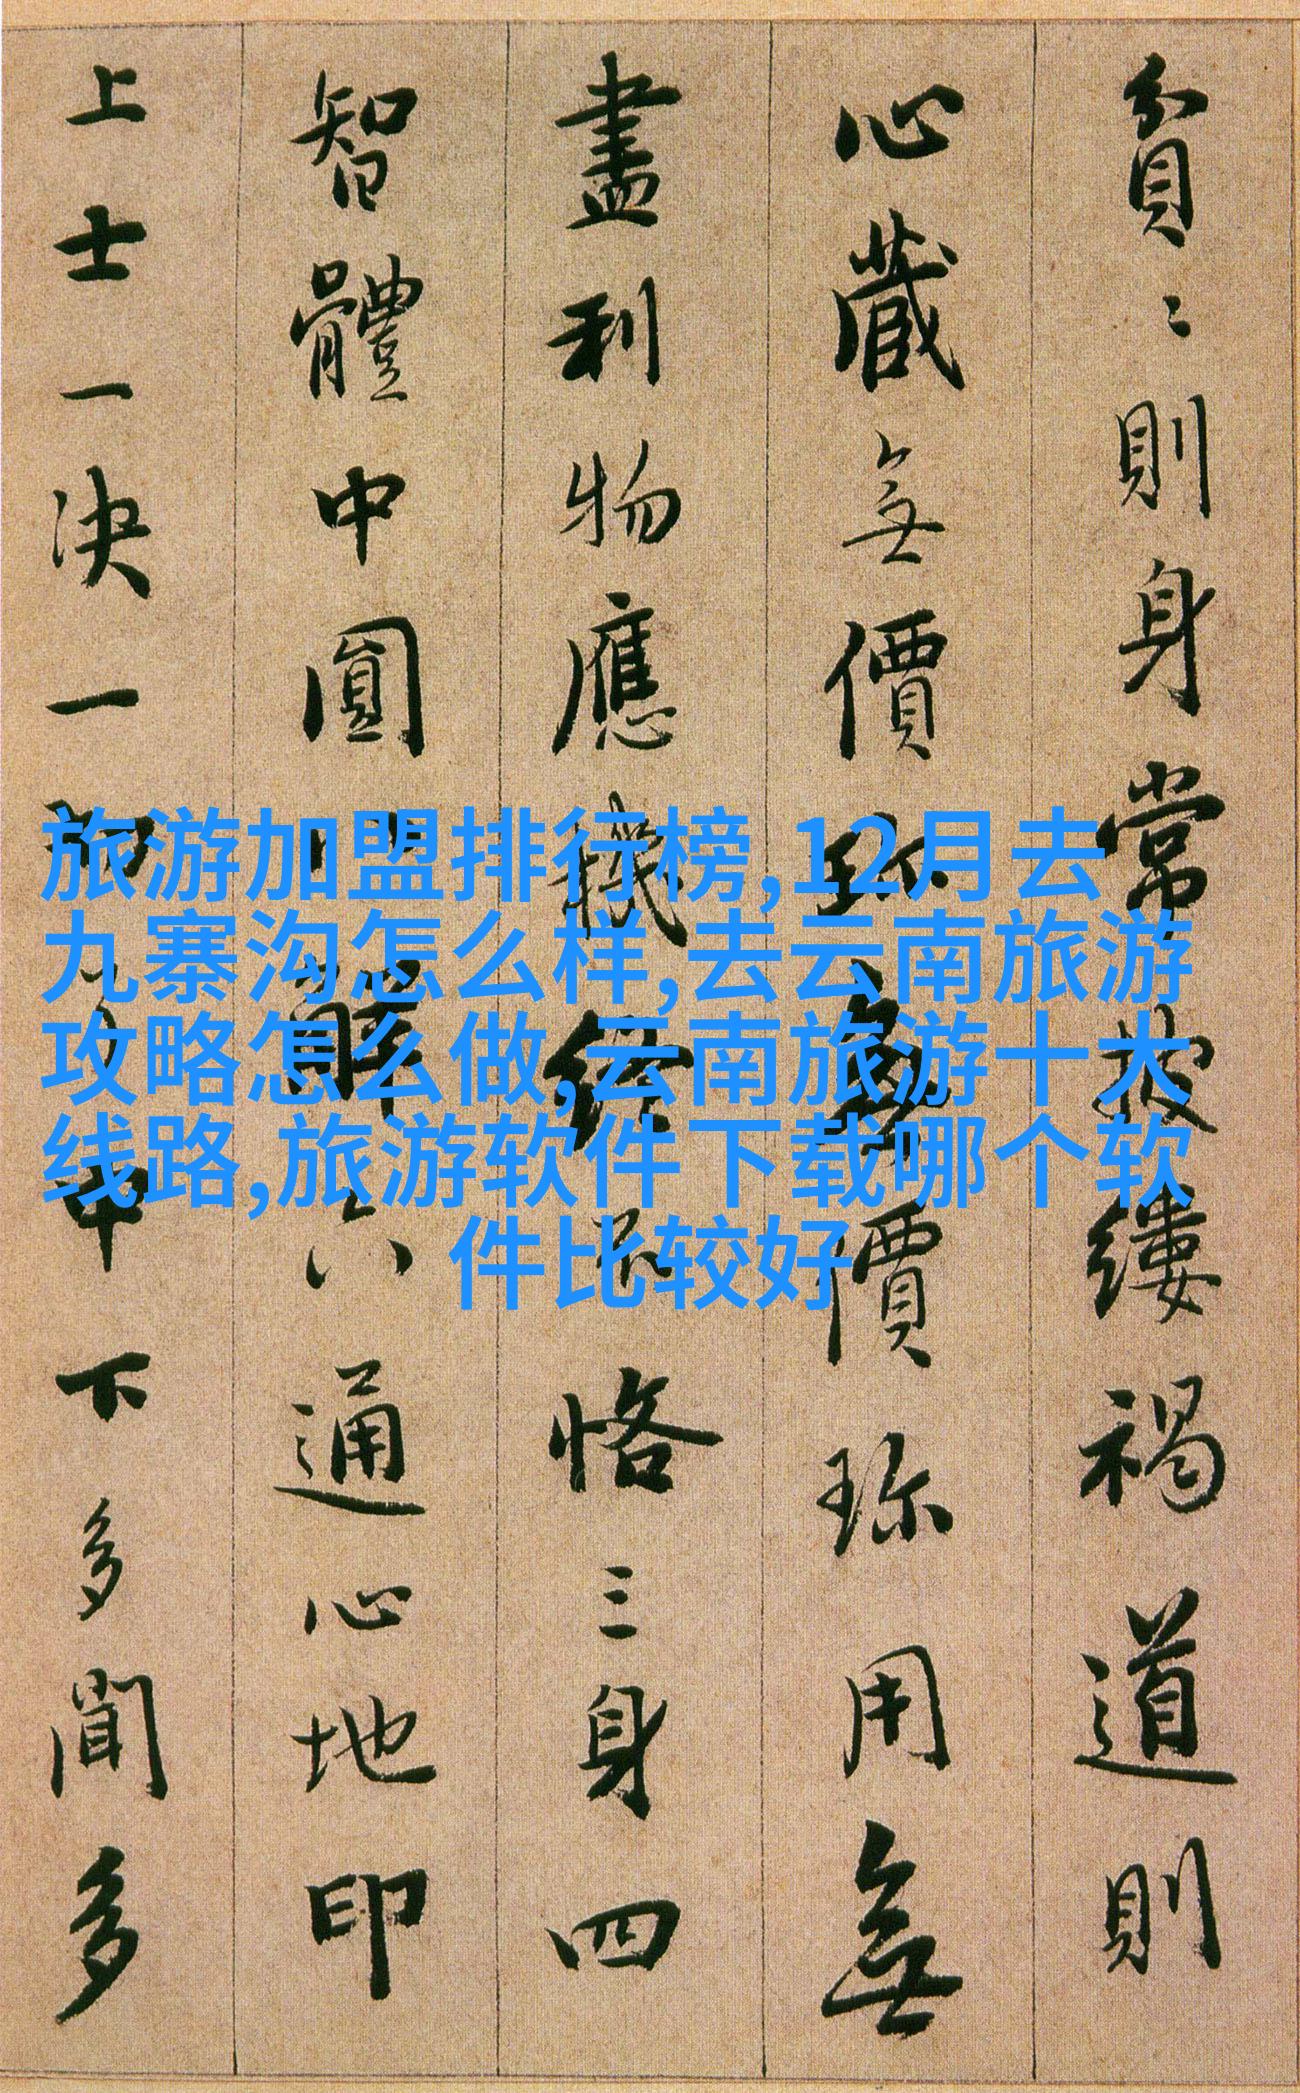 貧〻則身常披縷褐道則
心藏無價珎無價珎用無
盡利物應機終不恪三身四
智體中圓八解六通心地印
上士一决一切了中下多聞多
旅游加盟排行榜,12月去
九寨沟怎么样,去云南旅游
攻略怎么做,云南旅游十大
线路,旅游软件下载哪个软
件比较好